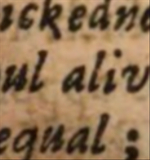 ickedne
oul aliv
equal ;